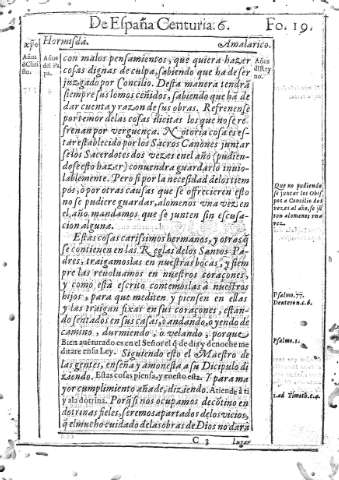 De España Centuria. 6. Fo. 19.
Hormisda. Amalarico.
con malos pensamientos, que quiera hazer
cosas dignas de culpa, sabiendo que ha de ser
juzgado por Concilio. Desta manera tendrã
siempre sus lomos ceñidos, sabiendo que hã de
dar cuenta y razon de sus obras. Refrenense
por temor de las cosas ilicitas los que no se re
frenan por verguença. Notoria cosa es es-
tar establecido por los Sacros Canones juntar
se los Sacerdotes dos vezes en el año (pudien-
do se esto hazer) conuendra guardarlo inuio-
lablemente. Pero si por la necesidad de los tiem
pos, ò por otras causas que se offrecieren esto
no se pudiere guardar, alomenos vna vez en
el año mandamos que se junten sin escusa-
cion alguna.
Estas cosas carissimos hermanos, y otras q̃
se contienen en las Reglas de los Santos Pa-
dres, traigamoslas en nuestras bocas, y siem-
pre las reuoluamos en nuestros coraçones,
y como està escrito contemoslas à nuestros
hijos, para que mediten y piensen en ellas
y las traigan fixar en sus coraçones, estan-
do sentados en sus casas, ò andando, ò yendo de
camino, durmiendo, ò velando, porque.
Bien auẽturado es en el Señor el q̃ de dia y de noche me
ditare en su Ley. Siguiendo esto el Maestro de
las gentes, enseña y amonesta a su Dicipulo di
ziendo. Estas cosas piensa, y en esto esta. Y para ma
yor cumplimiento añade, diziendo. Atiende à ti
y a la dotrina. Porq̃ si nos ocupamos de cõtino en
dotrinas fieles, seremos apartados de los vicios,
q̃ el mucho cuidado de las obras de Dios no darà
C 3 Lugar
Que no pudiendo
se juntar los Obis
pos a Concilio dos
vezes al año, se jũ
ten alomenos vna
vez.
Psalmo. 77.
Deuteron. c. 6.
Psalmo. 1.
1. ad Timoth. c. 4.